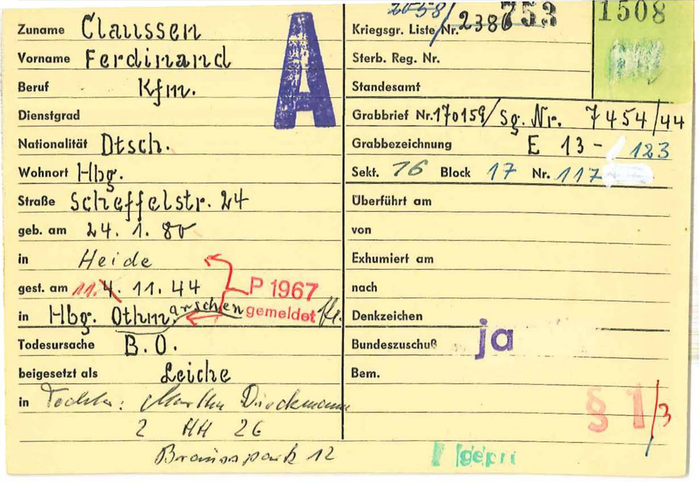 Zuname Claussen
Vorname Ferdinand
Beruf Kfm.
Dienstgrad
Nationalität Dtsch.
Wohnort Hbg.
Straße Scheffelstr. 24
geb. am 24. 1. 80
in Heide
gest. am 11. 4. 11. 44
in Hbg. Othmarschen
Todesursache B.O.
beigesetzt als Leiche
in Tochter: Martha Dieckmann
2 HH 26
Braunspark 12
A
P 1967
gemeldet
Kriegsgr. Liste Nr. 2058/2386 753
1508
Sterb. Reg. Nr.
Standesamt
Grabbrief Nr. 170159/Sg. Nr. 7454/44
Grabbezeichnung E 13 - 123
Sekt. 16 Block 17 Nr. 117
Überführt am
von
Exhumiert am
nach
Denkzeichen
Bundeszuschuß ja
Bem.
§ 1/3
gepr